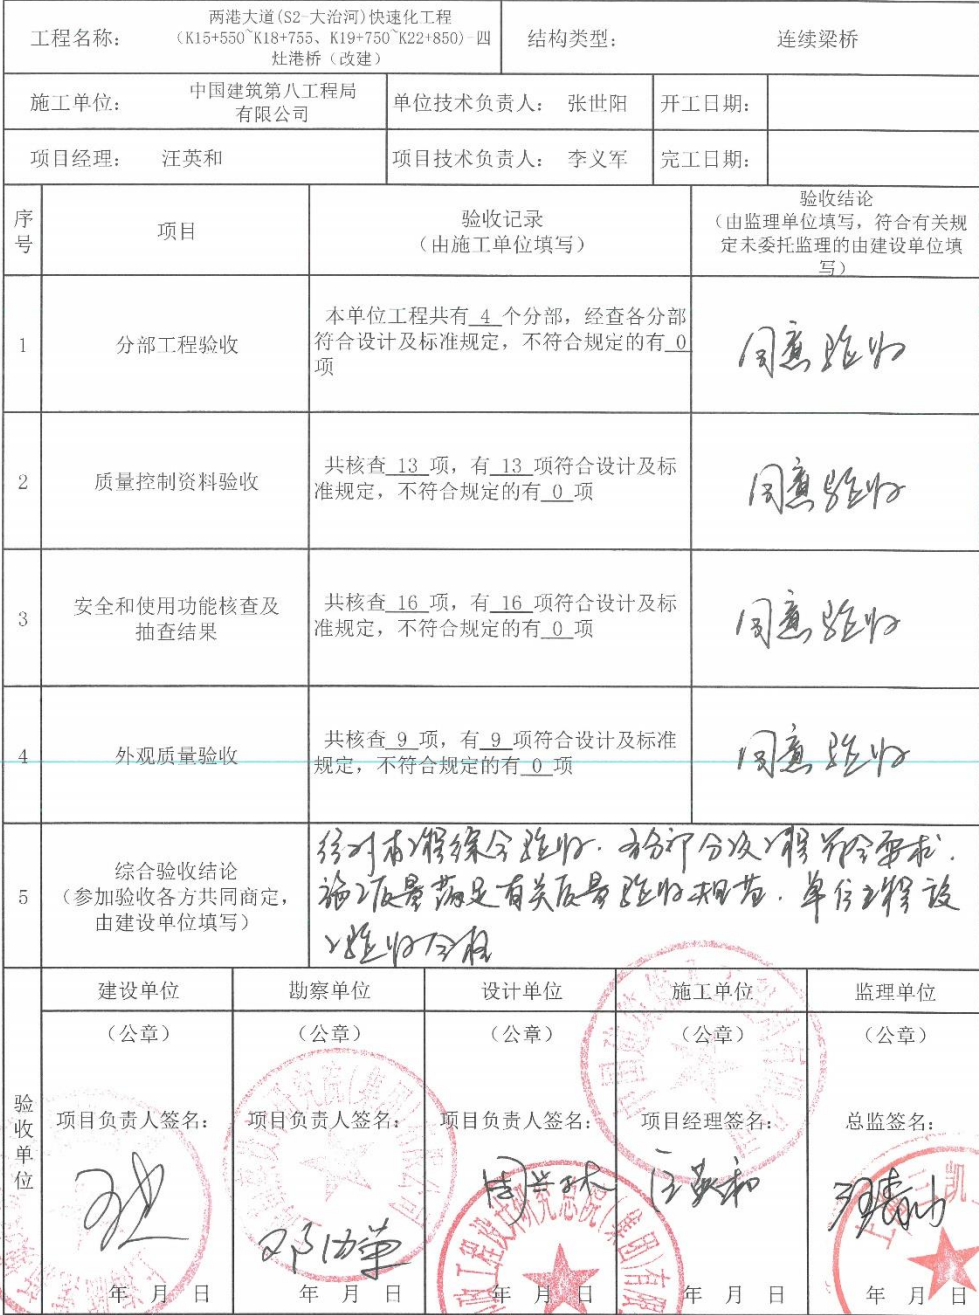 工程名称：
两港大道(S2-大治河)快速化工程
(K15+550~K18+755、K19+750~K22+850)-四
灶港桥（改建）
结构类型：
连续梁桥
施工单位：
中国建筑第八工程局
有限公司
单位技术负责人：
张世阳
开工日期：
项目经理：
汪英和
项目技术负责人：
李义军
完工日期：
序
号
项目
验收记录
（由施工单位填写）
验收结论
（由监理单位填写，符合有关规
定未委托监理的由建设单位填
写）
1
分部工程验收
本单位工程共有 4 个分部，经查各分部
符合设计及标准规定，不符合规定的有 0
项
同意验收
2
质量控制资料验收
共核查 13 项，有 13 项符合设计及标
准规定，不符合规定的有 0 项
同意验收
3
安全和使用功能核查及
抽查结果
共核查 16 项，有 16 项符合设计及标
准规定，不符合规定的有 0 项
同意验收
4
外观质量验收
共核查 9 项，有 9 项符合设计及标准
规定，不符合规定的有 0 项
同意验收
5
综合验收结论
（参加验收各方共同商定，
由建设单位填写）
经对本工程综合验收，各分部分项工程符合要求，
施工质量满足有关质量验收规范，单位工程
验收合格
验
收
单
位
建设单位
勘察单位
设计单位
施工单位
监理单位
（公章）
（公章）
（公章）
（公章）
（公章）
项目负责人签名：
项目负责人签名：
项目负责人签名：
项目经理签名：
总监签名：
汪英和
年 月 日
年 月 日
年 月 日
年 月 日
年 月 日
工程设计研究总院(集团)有限